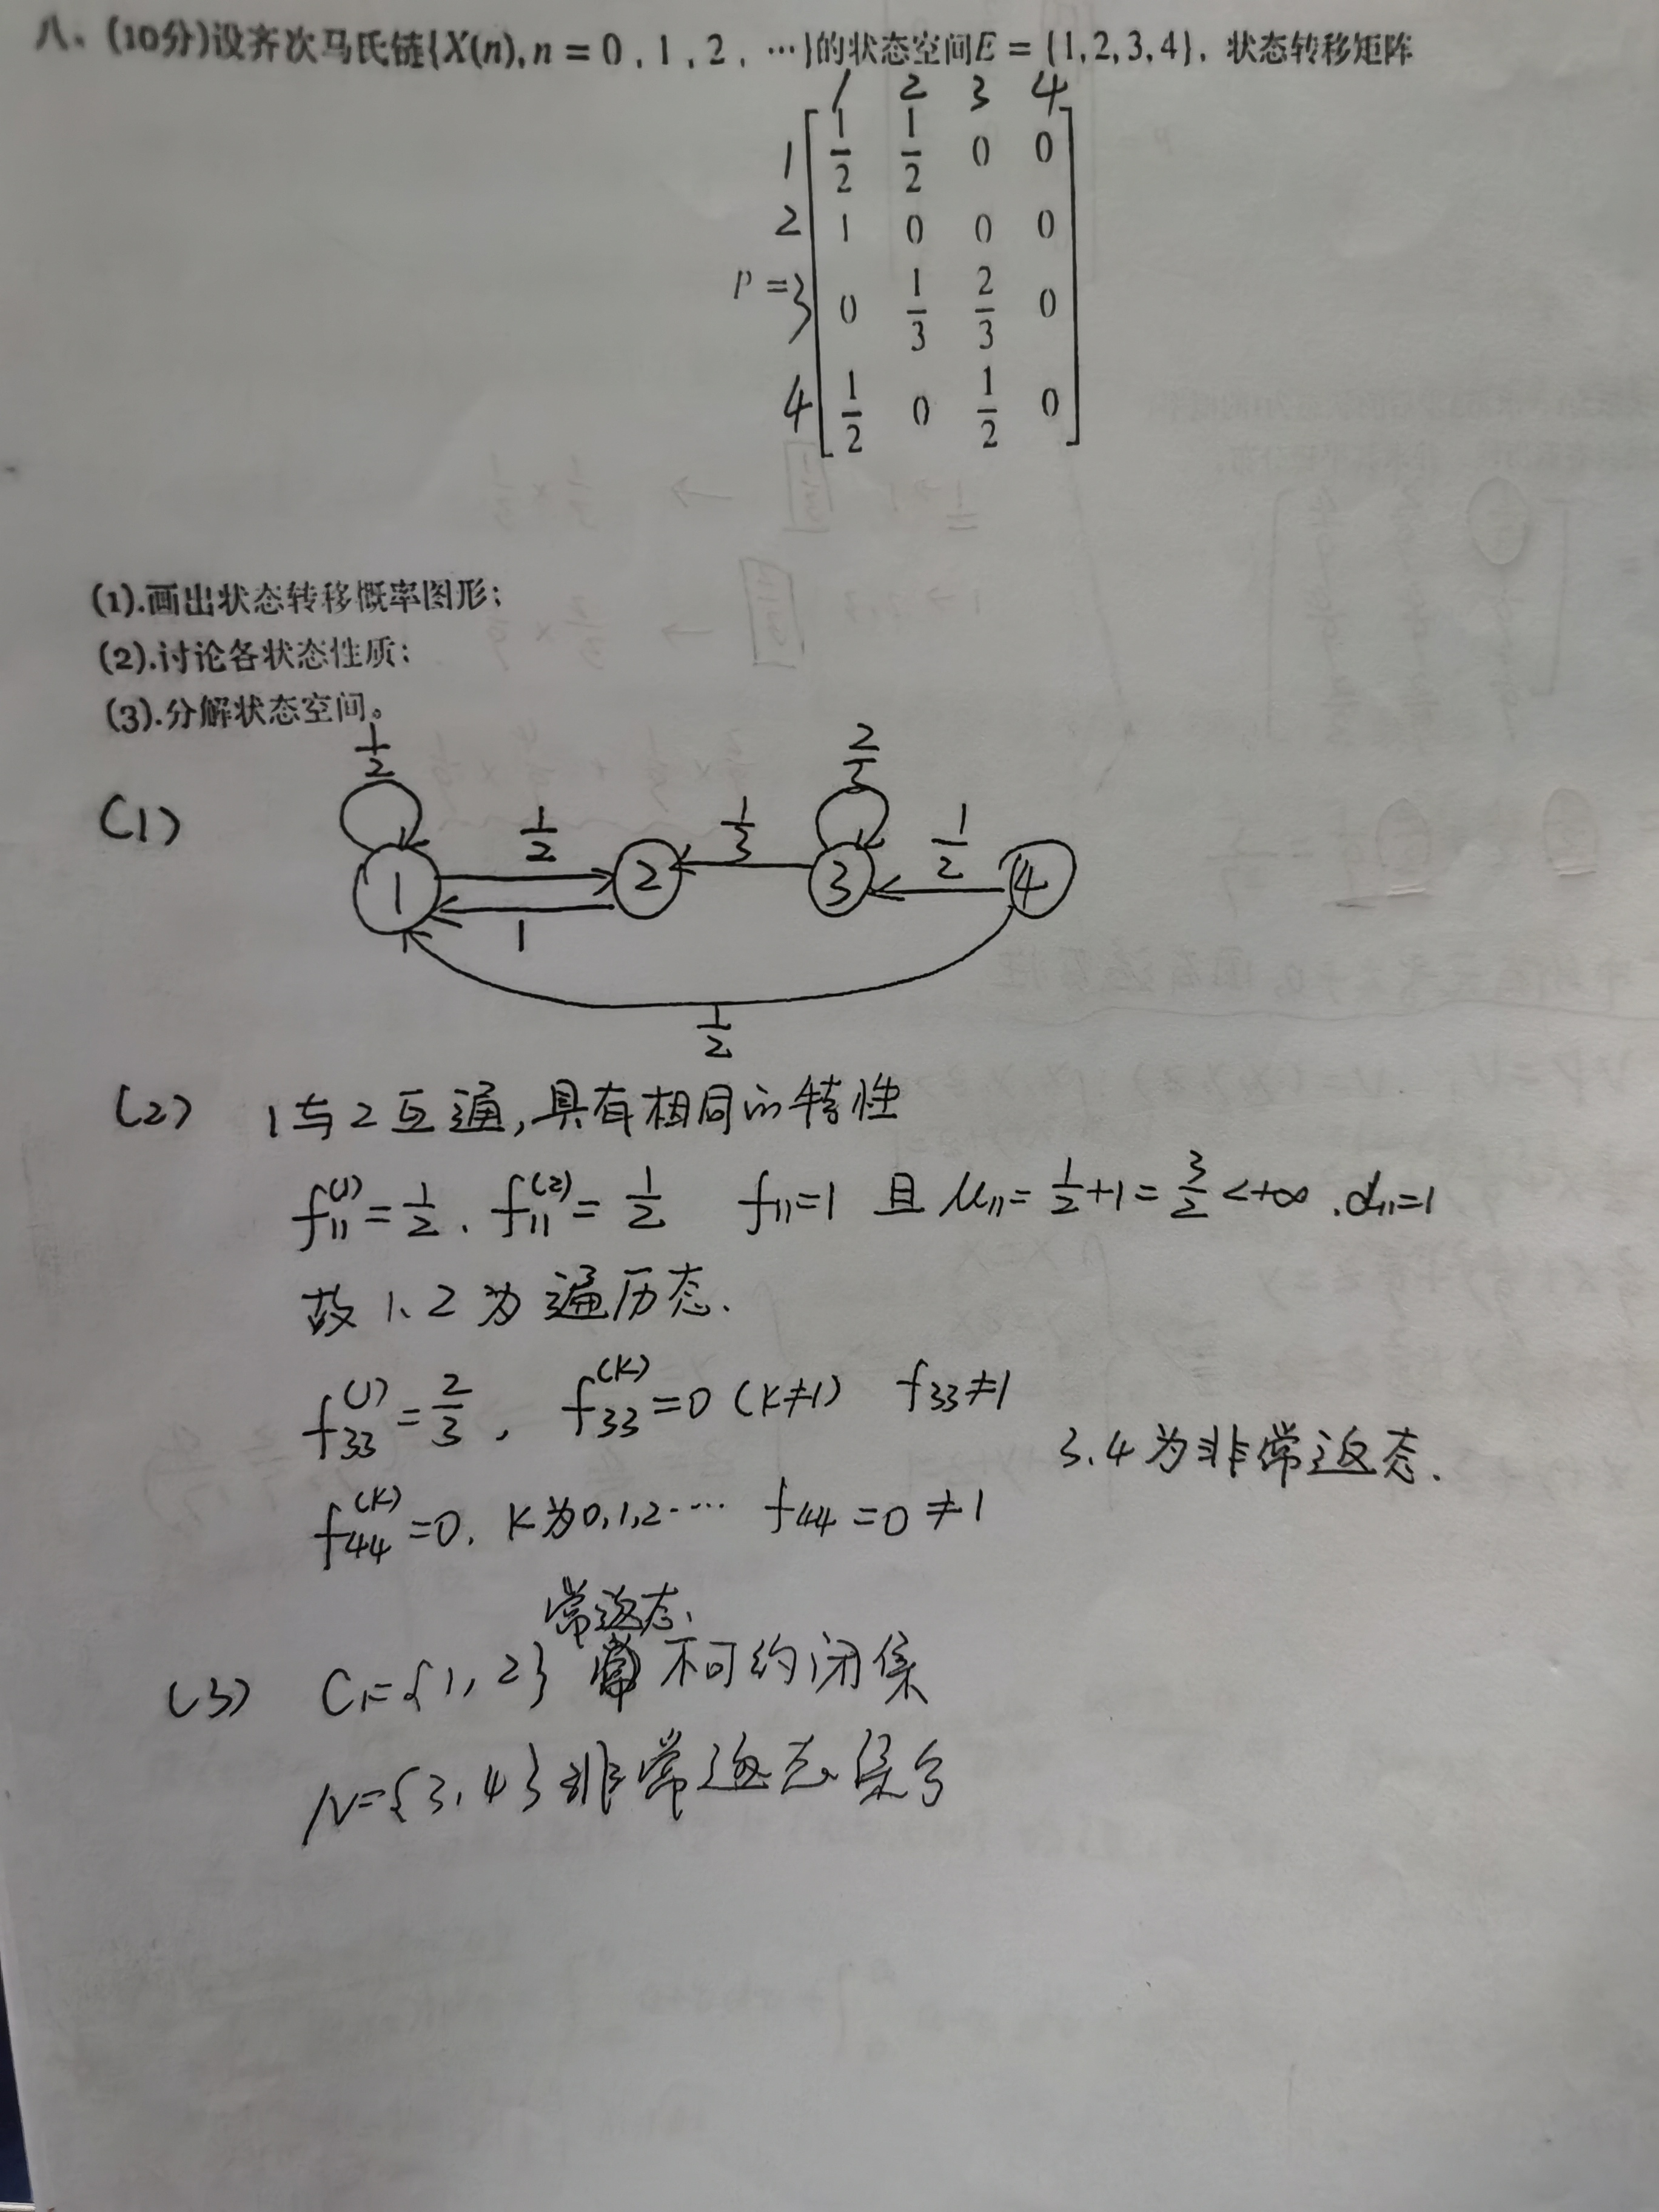 八、(10分)设齐次马氏链{X(n), n = 0, 1, 2, ⋯}的状态空间E = {1,2,3,4}, 状态转移矩阵
1 2 3 4
1 1/2 1/2 0 0
2 1 0 0 0
P = 3 0 1/3 2/3 0
4 1/2 0 1/2 0
(1).画出状态转移概率图形;
(2).讨论各状态性质;
(3).分解状态空间。
(1)
1/2 2/3
1/2 1/3 1/2
1 2 3 4
1
1/2
(2) 1与2互通,具有相同的特性
f₁₁⁽¹⁾=1/2. f₁₁⁽²⁾=1/2 f₁₁=1 且 μ₁₁=1/2+1=3/2<+∞ .d₁₁=1
故1、2为遍历态.
f₃₃⁽¹⁾=2/3, f₃₃⁽ᴷ⁾=0 (K≠1) f₃₃≠1
3.4为非常返态.
f₄₄⁽ᴷ⁾=0. K为0,1,2⋯ f₄₄=0≠1
常返态.
(3) C₁={1,2} 不可约闭集
N={3,4}非常返态集合